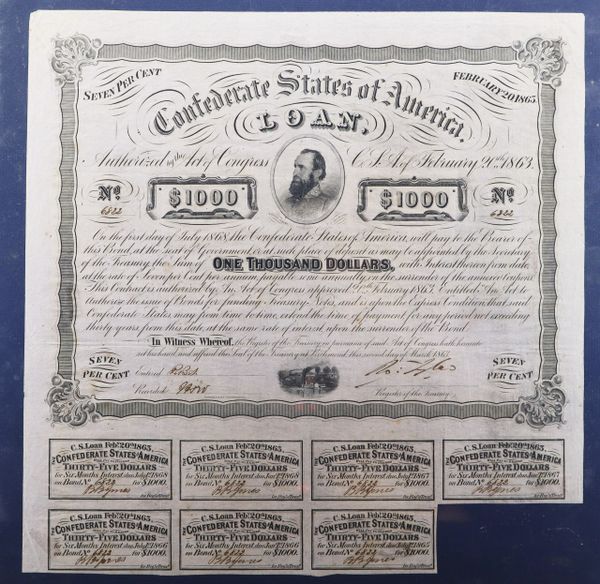 SEVEN PER CENT
FEBRUARY 20, 1863.
Confederate States of America
LOAN,
Authorized by the Act of Congress C.S.A. of February 20th 1863.
No
$1000
$1000
No
6822
6822
On the first day of July 1868, the Confederate States of America, will pay to the Bearer of
this Bond, at the Seat of Government, or at such place of deposit as may be appointed by the Secretary
of the Treasury, the Sum of ONE THOUSAND DOLLARS, with Interest thereon from date,
at the rate of Seven per Cent per annum, payable semi annually on the surrender of the annexed Coupons.
This Contract is authorized by An Act of Congress approved February 1863, Entitled, "An Act to
Authorise the issue of Bonds for funding Treasury Notes, and is upon the Express Condition, that said
Confederate States may from time to time, extend the time of payment for any period not exceeding
thirty years from this date, at the same rate of interest upon the surrender of this Bond
In Witness Whereof, the Register of the Treasury in pursuance of said Act of Congress hath hereunto
set his hand, and affixed the Seal of the Treasury at Richmond, this second day of March 1863.
SEVEN
PER CENT
SEVEN
PER CENT
Entered
Recorded
Register of the Treasury
C.S. Loan Feby. 20th 1863.
THE CONFEDERATE STATES OF AMERICA
THIRTY-FIVE DOLLARS
for Six Months Interest due July 1st 1868
on Bond No 6822 for $1000.
C.S. Loan Feby. 20th 1863.
THE CONFEDERATE STATES OF AMERICA
THIRTY-FIVE DOLLARS
for Six Months Interest due Jany 1st 1868
on Bond No 6822 for $1000.
C.S. Loan Feby. 20th 1863.
THE CONFEDERATE STATES OF AMERICA
THIRTY-FIVE DOLLARS
for Six Months Interest due July 1st 1867
on Bond No 6822 for $1000.
C.S. Loan Feby. 20th 1863.
THE CONFEDERATE STATES OF AMERICA
THIRTY-FIVE DOLLARS
for Six Months Interest due Jany 1st 1867
on Bond No 6822 for $1000.
C.S. Loan Feby. 20th 1863.
THE CONFEDERATE STATES OF AMERICA
THIRTY-FIVE DOLLARS
for Six Months Interest due July 1st 1866
on Bond No 6822 for $1000.
C.S. Loan Feby. 20th 1863.
THE CONFEDERATE STATES OF AMERICA
THIRTY-FIVE DOLLARS
for Six Months Interest due Jany 1st 1866
on Bond No 6822 for $1000.
C.S. Loan Feby. 20th 1863.
THE CONFEDERATE STATES OF AMERICA
THIRTY-FIVE DOLLARS
for Six Months Interest due July 1st 1865
on Bond No 6822 for $1000.